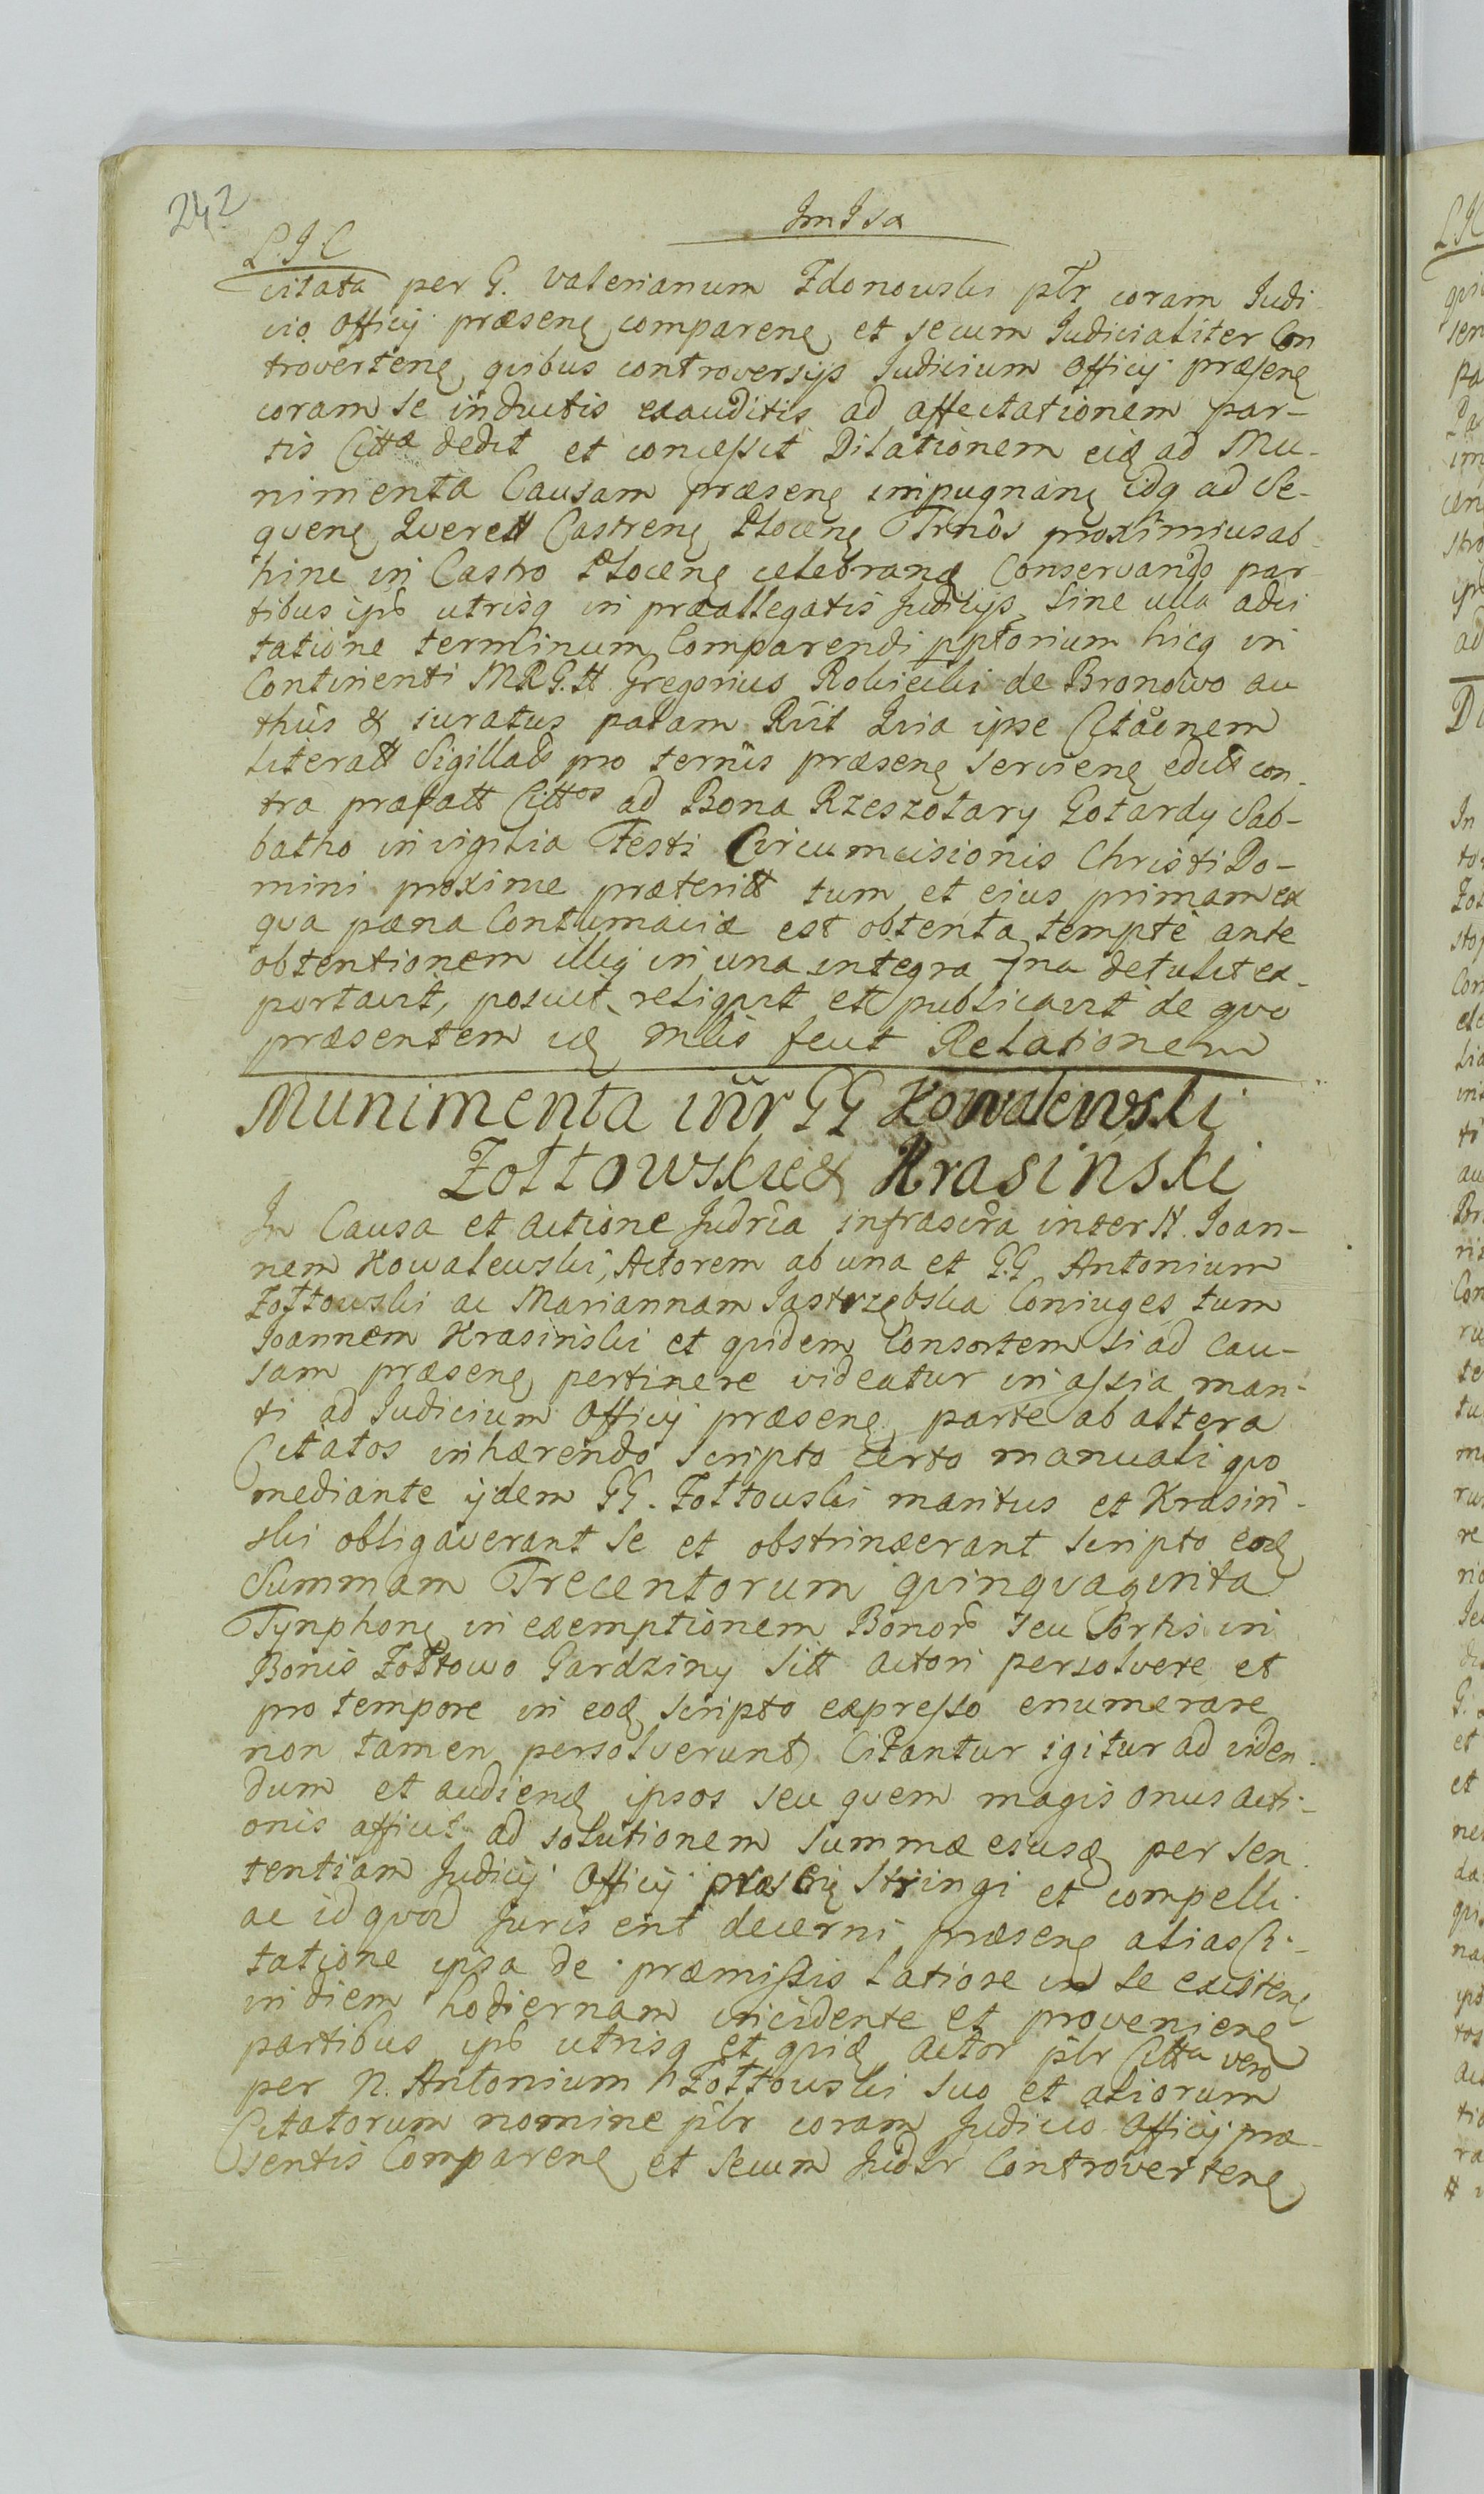 242
ImIsa
L.I C
citata per G. Valerianum Zdonowski plr coram Judi
cio Officij præsenę comparenę et secum Judicialiter Con
trovertenę quibus controversijs Judicium Officij præsenę
coram se inductis exauditis ad affectationem par-
tis Cittæ dedit et concessit Dilationem eię ad Mu-
nimenta Causam præsenę impugnanę idq ad Se-
quenę Querell Castrenę Plocenę Trnos proximius ab
hinc in Castro Plocenę celebranę Conservando par
tibus ips utrisq in præallegatis Judicijs Sine ulla adci
tatione terminum Comparendi pptorium hicq in
Continenti MRG. H Gregorius Rokicki de Bronowo au
thus & iuratus palam Rvit Quia ipse Citaonem
Literatt Sigillatt pro ternis præsenę servienę editt con-
tra præfatt Cittos ad Bona Rzeszotary Gotardy Sab-
batho in vigilia Festi Circumcisionis Christi Do-
mini proxime præteritt tum et eius primam ex
qva pæna Contumaciæ est obtenta tempte ante
obtentionem illiq in una integra Tna detulit ex-
portavit, posuit reliqvit et publicavit de qvo
præsentem ię mlis fecit Relationem
Munimenta intr GG Kowalewski
Zołtowskie & Krasinski
In Causa et actione Judria infrascra inter N. Joan-
nem Kowalewski, Actorem ab una et G.G Antonium
Zołtowski ac Mariannam Jastrzębska Coniuges tum
Joannem Krasiński et qvidem Consortem si ad Cau-
sam præsenę pertinere videatur in assia man-
ti ad Judicium Officij præsenę parte ab altera
Citatos inhærendo Scripto certo manuali qvo
mediante ijdem GG. Zołtowski maritus et Krasiń-
ski obligaverant se et obstrinxerant Scripto eoę
Summam Trecentorum qvinqvaginta
Tynphonę in exemptionem Bonor seu Sortis in
Bonis Zołtowo Gardziny Sitt actori persolvere et
pro tempore in eoę scripto expresso enumerare
non tamen persolverunt) Citantur igitur ad viden-
dum et audienę ipsos seu qvem magis onus acti-
onis afficit ad solutionem Summæ eiusę per Sen-
tentiam Judicij Officij præsenę stringi et compelli
ac id qvod Juris erit decerni præsenę alias Ci-
tatione ipsa de præmissis latiore in se existenę
in diem hodiernam incidente et provenienę
partibus ips utrisq et qvię actor plr Citta vero
per N. Antonium Zołtowski suo et aliorum
Citatorum nomine plr coram Judicio Officij præ-
sentis Comparenę et Secum Judlr Controvertenę